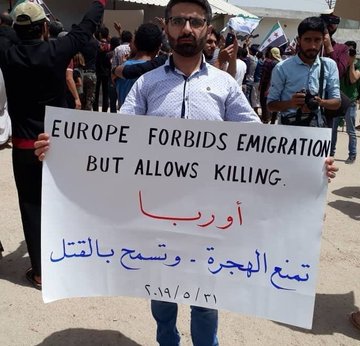 EUROPE FORBIDS EMIGRATION
BUT ALLOWS KILLING.
أوربا
تمنع الهجرة - وتسمح بالقتل
٢٠١٩/٥/٣١